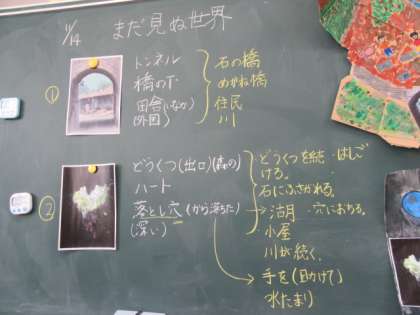 11/14 まだ見ぬ世界
①
トンネル
橋の下
田舎(いなか)
(外国)
石の橋
めがね橋
住民
川
②
どうくつ(出口)(森の)
ハート
落とし穴(から落ちた)
(深い)
どうくつを続
はしご
ける。
石にふさがれる。
穴におちる。
小屋
川が続く。
手を(助けて)
水たまり